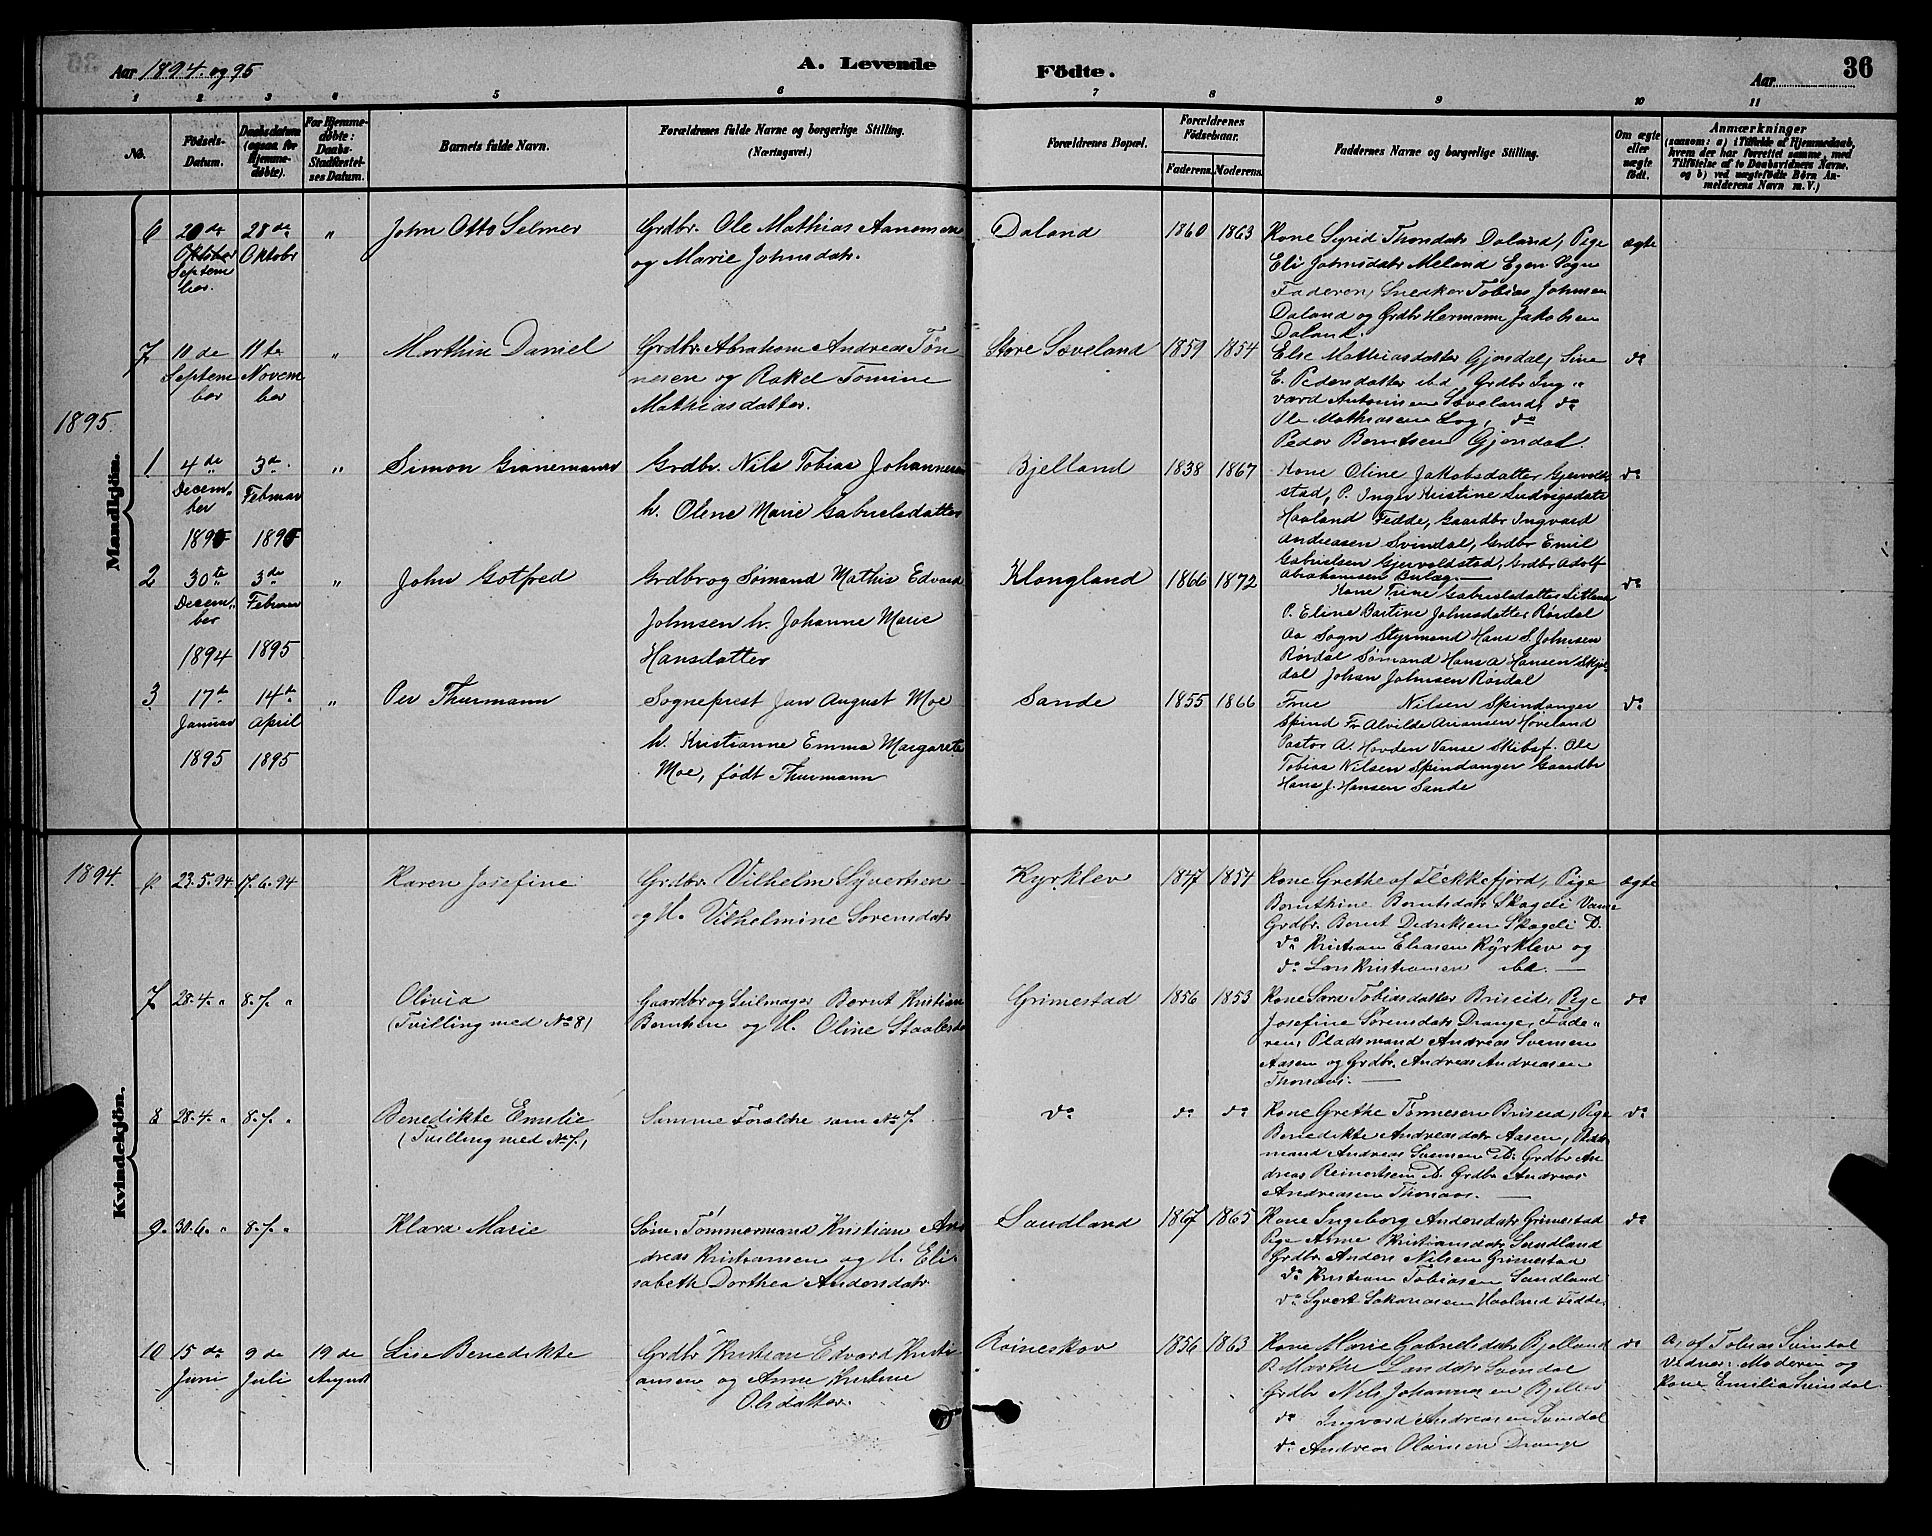 Aar 1894. og 95
A. Levende Födte.
Aar
36
1 2 3 4 5 6 7 8 9 10 11
No.
Födsels-
Datum.
Daabsdatum
(ogsaa for
Hjemme-
döbte).
For Hjemme-
döbte:
Daabs-
Stadfæstel-
ses Datum.
Barnets fulde Navn.
Forældrenes fulde Navne og borgerlige Stilling.
(Næringsvei.)
Forældrenes Bopæl.
Forældrenes
Födselsaar.
Faderens. Moderens.
Faddernes Navne og borgerlige Stilling.
Om ægte
eller
uægte
födt.
Anmærkninger
(saasom: a) i Tilfælde af Hjemmedaab,
hvem der har forrettet samme, med
Tilföielse af to Daabsvidners Navne,
og b) ved uægtefödte Börn An-
melderens Navn m. V.)
Mandkjön.
6
Oktober
Septem
ber.
28 de
Oktobr
"
John Otto Selmer
Grdbr. Ole Mathias Aanensen
og Marie Johnsdatr.
Daland
1860 1863
Kone Sigrid Thorsdatr Daland, Pige
Eli Johnsdatr Meland Egen. Sogn
Faderen, Snedker Tobias Johnsen
Daland og Grdbr Hermann Jakobsen
Daland.
ægte
7
11 de
Septem
ber
11 te
Novem
ber
"
Marthin Daniel
Grdbr. Abraham Andreas Tön
nesen og Rakel Tomine
Mathiasdatter.
Store Søveland
1859 1854
Else Mathiasdatter Gjersdal, Sine
E. Pedersdatter ibd. Grdbr Ing"
vard Antonisen Søveland, do
Ole Mathiasen Log, do
Peder Berntsen Gjersdal.
do
1895.
1
4 de
Decem-
ber
1895
3 de
Februar
1895
"
Simon Grønemann
Grdbr. Nils Tobias Johannesen
h. Olene Marie Gabrielsdatter
Bjelland
1838 1867
Kone Oline Jakobsdatter Gjervold-
stad, P. Inger Kristine Ludvigsdatr
Haaland Fedde, Gaardbr Ingvard
Andreasen Svindal, Grdbr Emil
Gabrielsen Gjervoldstad, Grdbr Adolf
Abrahamsen Bulæg.
do
2
30te
Decem-
ber
1894
3de
Februar
1895
"
John Gotfred
Grdbr og Sømand Mathis Edvard
Johnsen h. Johanne Marie
Hansdatter
Klongland
1866 1872
Kone Trine Gabrielsdatter Litland
P. Eline Bertine Johnsdatter Rørdal
Aa Sogn Styrmand Hans S. Johnsen
Rørdal Sømand Hans A Hansen Skjol
dal Johan Johnsen Rørdal
do
3
17 de
Januar
1895
14 de
April
1895
"
Per Thurmann
Sogneprest Jan August Moe
h. Kristianne Emma Margarete
Moe, født Thurmann
Sande
1855 1866
Frue Nilsen Spindanger
Spind Fr. Alvilde Ariansen Høveland
Pastor A. Hovden Vanse Skibsf. Ole
Tobias Nilsen Spindanger Gaardbr
Hans J. Hansen Sande
do
Kvindekjön.
1894.
6.
23.5.94
17.6.94
Karen Josefine
Grdbr. Vilhelm Syvertsen
og H. Vilhelmine Sørensdatr
Kyrklev
1847 1854
Kone Grethe af Flekkefjord, Pige
Bernthine Berntsdatr Skagdi Vanse
Grdbr. Bernt Didriksen Skagdi D.
do Kristian Eliasen Kyrklev og
do Lars Kristiansen ibd.
ægte
7.
28.4. "
8.7. "
Olivia
(Tvilling med No 8)
Gaardbr og Seilmager Bernt Kristian
Berntsen og H. Oline Staalesd
Grimestad
1856 1853
Kone Sara Tobiasdatter Briseid, Pige
Josefine Sørensdatr Drange, Fade-
ren, Pladsmand Andreas Svensen
Aasen og Grdbr. Andreas Andreasen
Thonaas.
do
8
28.4. "
8.7. "
Benedikte Emilie
(Tvilling med No 7)
Samme Forældre som No 7.
do
do do
Kone Grethe Tønnesen Briseid, Pige
Benedikte Andreasdatr Aasen, Plads
mand Andreas Svensen D. Grdbr An
dreas Reinertsen D. Grdbr Andreas
Andreasen Thonaas.
do
9.
30.6. "
8.7. "
Klara Marie
Søm. Tømmermand Kristian An
dreas Kristiansen og H. Eli
sabeth Dorthea Andersdatr
Sandland
1867 1865
Kone Ingeborg Andersdatr Grimestad
Pige Anne Kristiansdatr Sandland
Grdbr Anders Nilsen Grimestad
do Kristian Tobiasen Sandland
do Syvert Sakariasen Haaland Fedde
do
10
15 de
Juni
9 de
Juli
19 de
August
Lise Benedikte
Grdbr Kristian Edvard Kristi
ansen og Anne Kristine
Olsdatter.
Roineskar
1856 1863
Kone Marie Gabrielsdatr Bjelland
P. Marthe Larsdatr Svindal
Grdbr Nils Johannesen Bjelland
do Ingvard Andreasen Svindal
do Andreas Olaisen Drange
do
a, af Tobias Svindal
Vidner: Moderen og
Kone Emilia Svindal